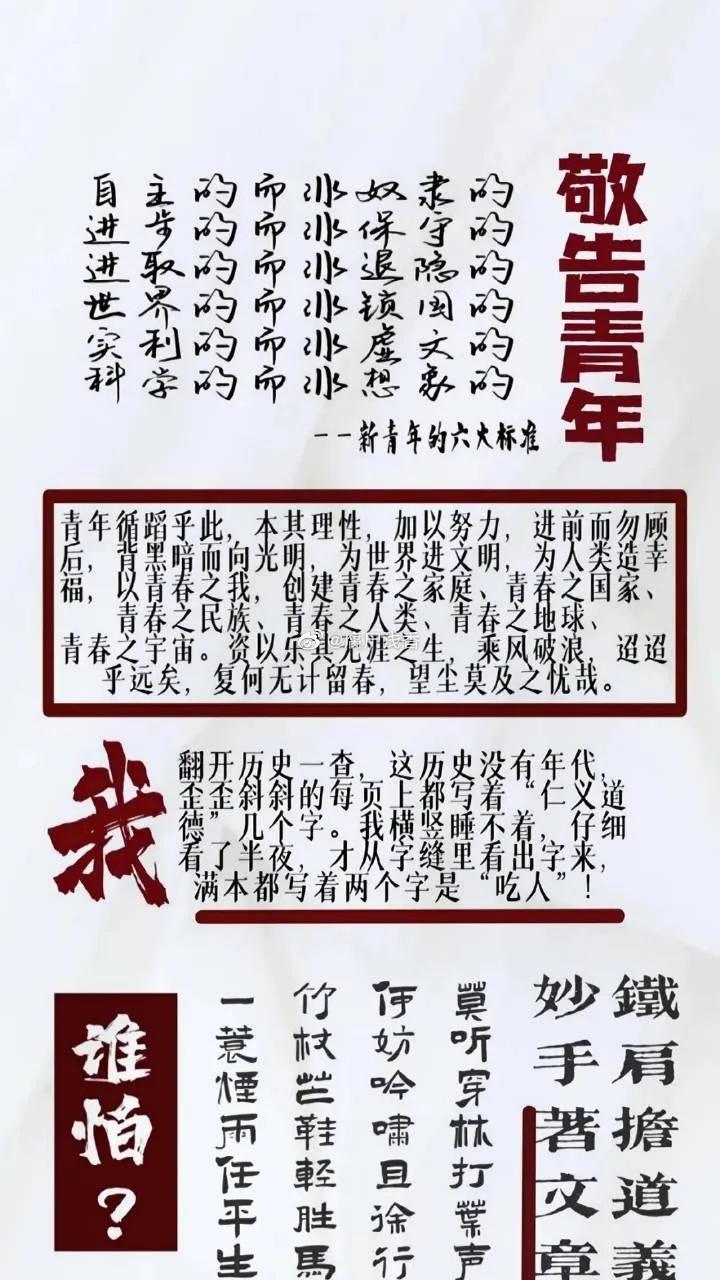 敬告青年
自主的而非奴隶的
进步的而非保守的
进取的而非退隐的
世界的而非锁国的
实利的而非虚文的
科学的而非想象的
——新青年的六大标准
青年循蹈乎此，本其理性，加以努力，进前而勿顾
后，背黑暗而向光明，为世界进文明，为人类造幸
福，以青春之我，创建青春之家庭、青春之国家、
青春之民族、青春之人类、青春之地球、
青春之宇宙。资以乐其无涯之生，乘风破浪，迢迢
乎远矣，复何无计留春，望尘莫及之忧哉。
我
翻开历史一查，这历史没有年代，
歪歪斜斜的每页上都写着“仁义道
德”几个字。我横竖睡不着，仔细
看了半夜，才从字缝里看出字来，
满本都写着两个字是“吃人”！
鐵肩擔道義
妙手著文章
莫听穿林打葉声
何妨吟嘯且徐行
竹杖芒鞋輕胜馬
谁怕？
一蓑煙雨任平生